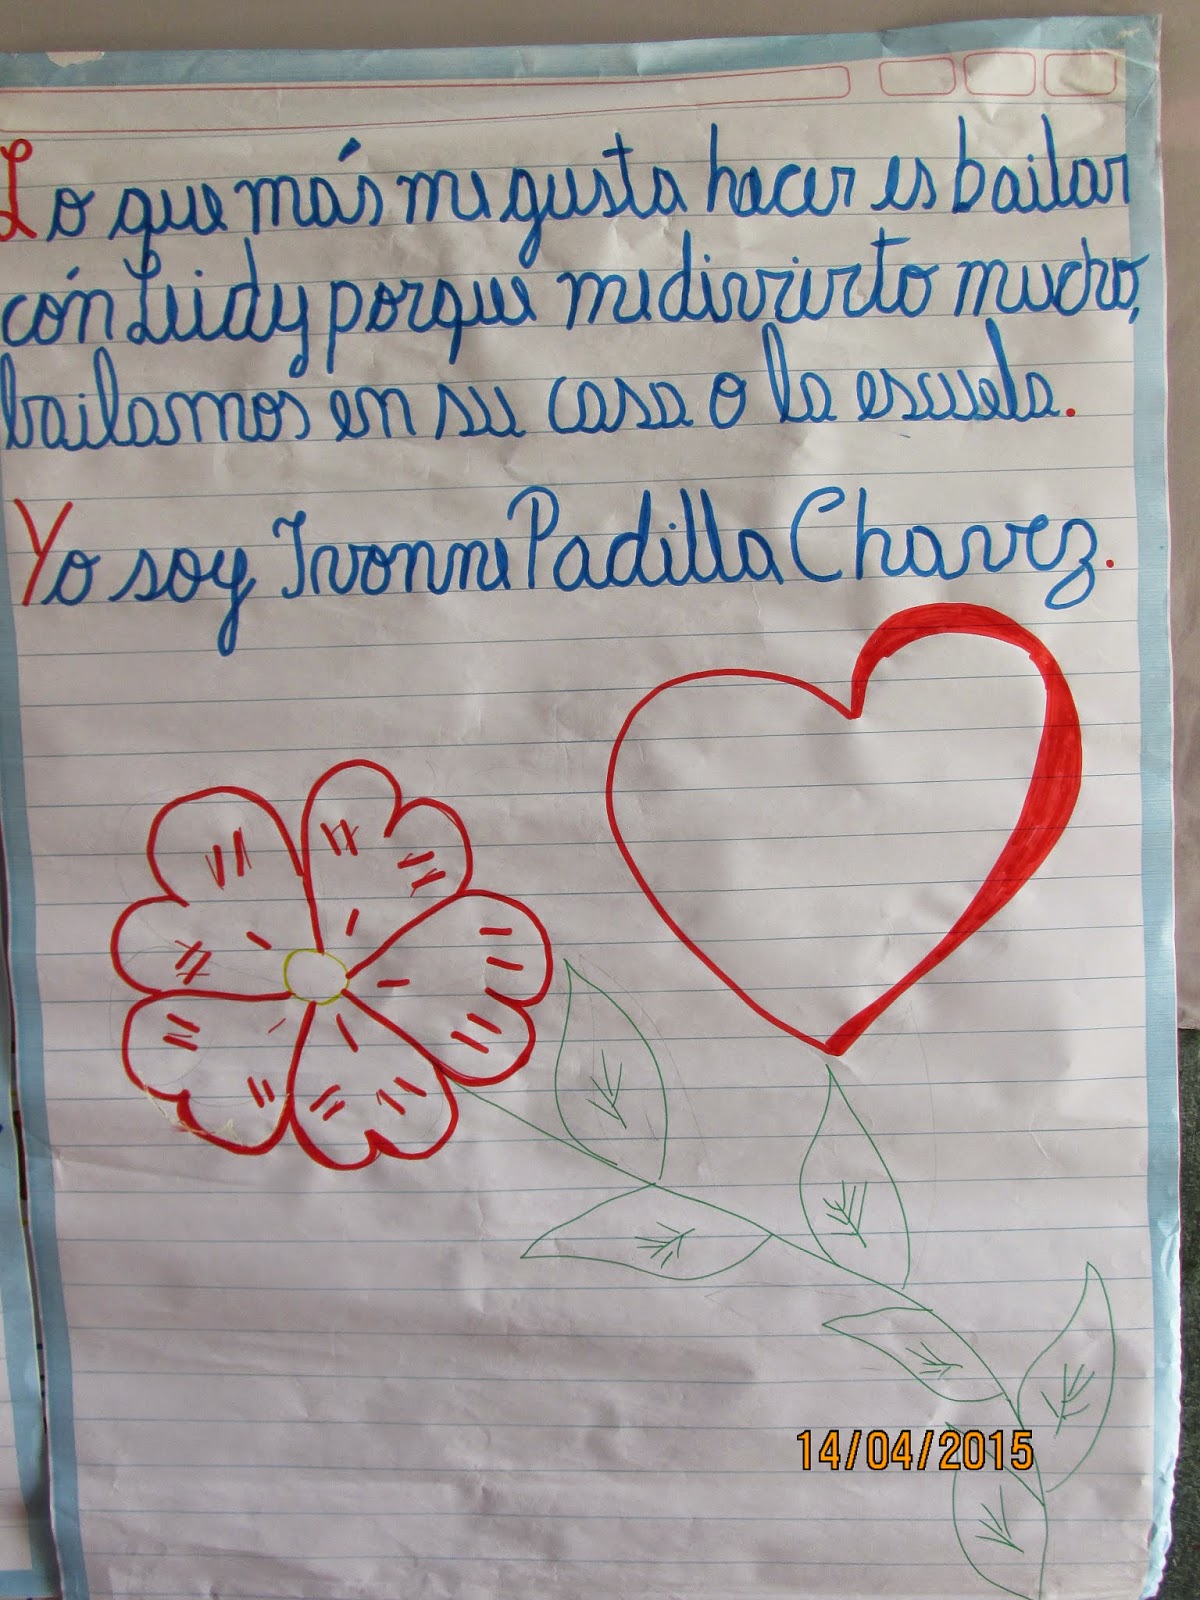 Lo que más me gusta hacer es bailar
cón Leidy porque me divierto mucho,
bailamos en su casa o la escuela.
Yo soy Ivonne Padilla Chavez.
14/04/2015